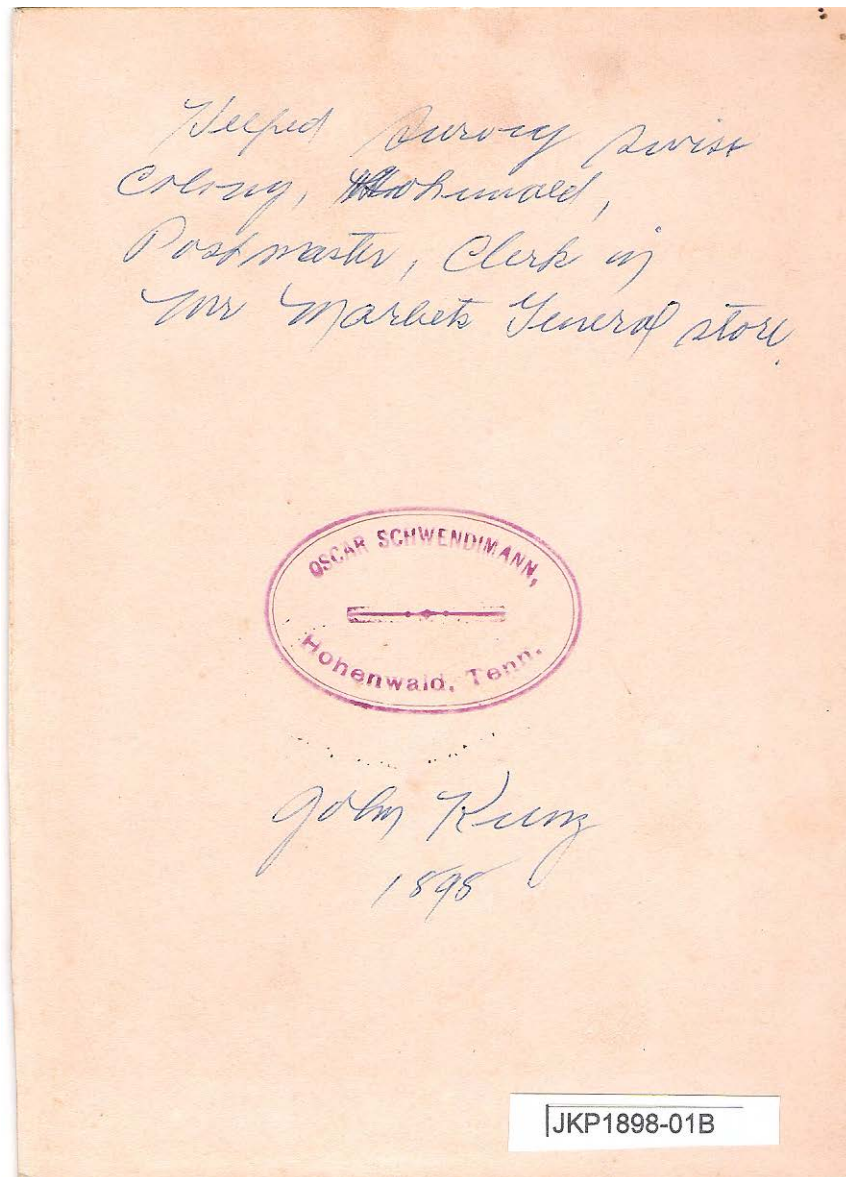 Helped survey Swiss
Colony, Hohenwald,
Postmaster, Clerk in
Mr Marbets General store.
OSCAR SCHWENDIMANN,
Hohenwald, Tenn.
John Kunz
1898
JKP1898-01B